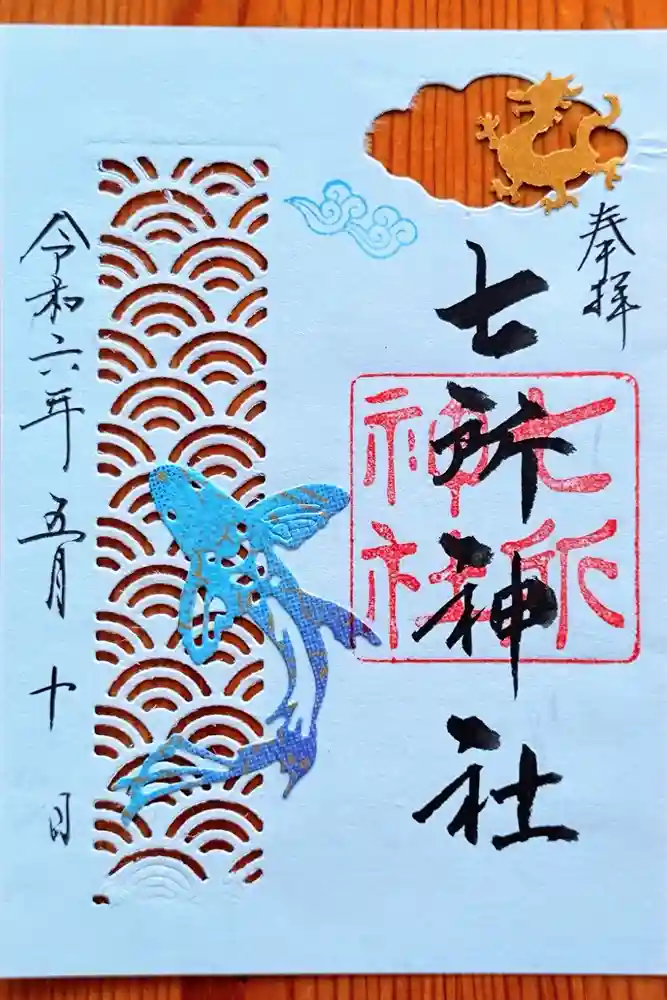 奉拝
七所神社
七所
神社
令和六年五月十日